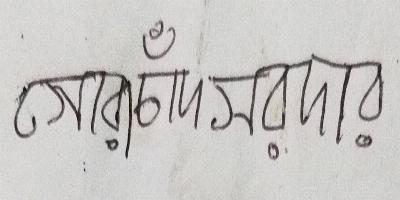 গোরাচাঁদ সরদার